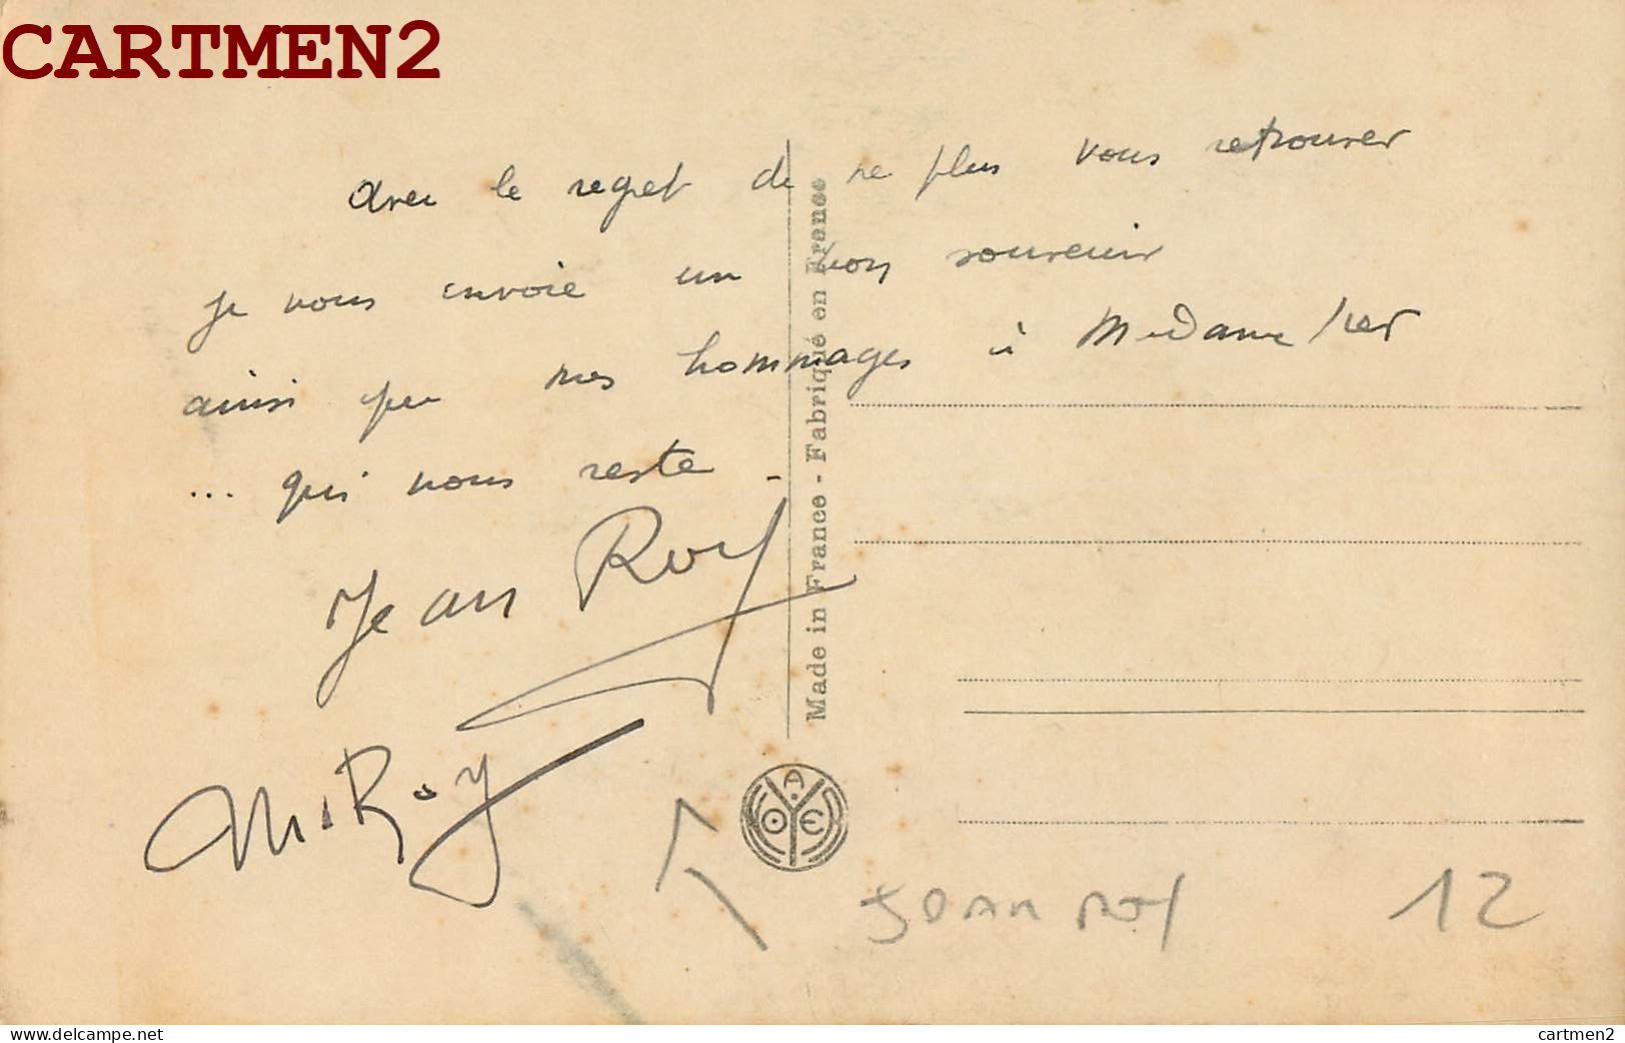 CARTMEN2
avec le regret de ne plus vous retrouver
je vous envoie un bon souvenir
ainsi que mes hommages à Madame
... qui nous reste -
Jean Roy
M. Roy
Made in France - Fabriqué en France
YOAE
JEAN ROY 12
www.delcampe.net
cartmen2